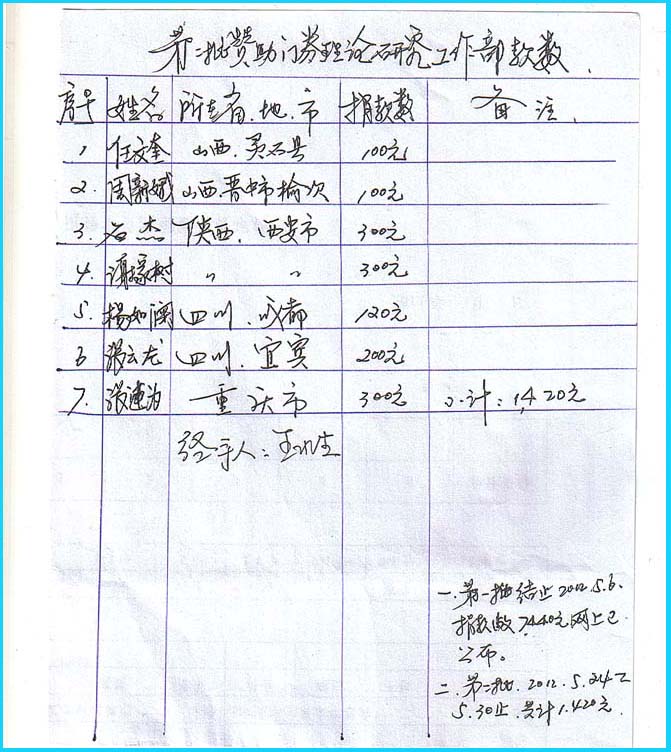 第二批赞助门券理论研究工作部款数
序号 姓名 所在省、地、市 捐款数 备注
1. 任文奎 山西、灵石县 100元
2. 周新斌 山西、晋中市榆次 100元
3. 石杰 陕西、西安市 300元
4. 树 〃 〃 300元
5. 杨如 四川、成都 120元
6 张云龙 四川、宜宾 200元
7. 张建为 重庆市 300元 小计：1,420元
经手人：王
一、第一批结止2012.5.6、
捐款数7440元网上已
公布。
二、第二批、2012.5.24—
5.30止、共计1.420元